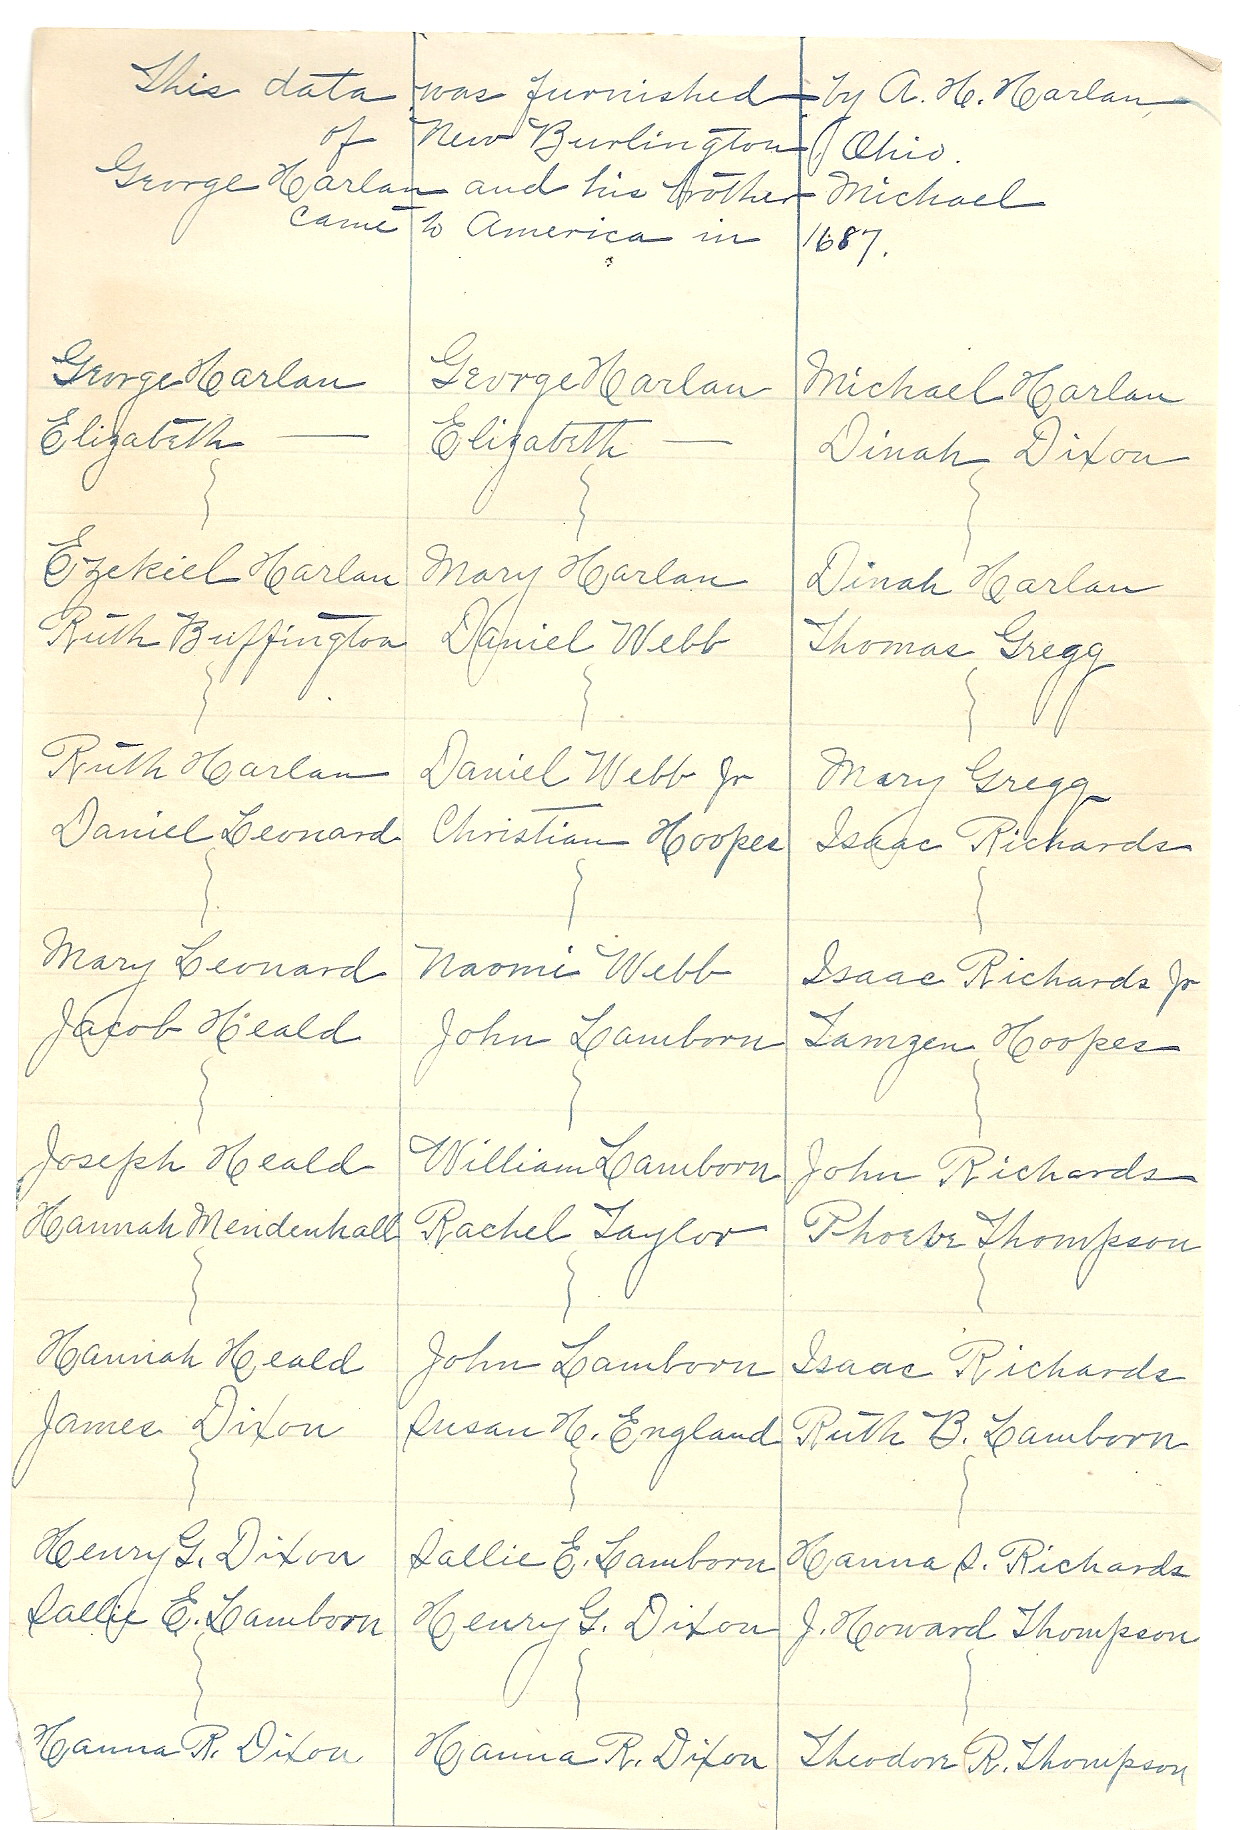 This data was furnished by A. H. Harlan
of New Burlington Ohio.
George Harlan and his brother Michael
came to America in 1687.
George Harlan
Elizabeth —
Ezekiel Harlan
Ruth Buffington
Ruth Harlan
Daniel Leonard
Mary Leonard
Jacob Heald
Joseph Heald
Hannah Mendenhall
Hannah Heald
James Dixon
Henry G. Dixon
Sallie E. Lamborn
Hanna R. Dixon
George Harlan
Elizabeth —
Mary Harlan
Daniel Webb
Daniel Webb Jr
Christian Hoopes
Naomi Webb
John Lamborn
William Lamborn
Rachel Taylor
John Lamborn
Susan H. England
Sallie E. Lamborn
Henry G. Dixon
Hanna R. Dixon
Michael Harlan
Dinah Dixon
Dinah Harlan
Thomas Gregg
Mary Gregg
Isaac Richards
Isaac Richards Jr
Tamzen Hoopes
John Richards
Phoebe Thompson
Isaac Richards
Ruth B. Lamborn
Hanna S. Richards
J. Howard Thompson
Theodore R. Thompson